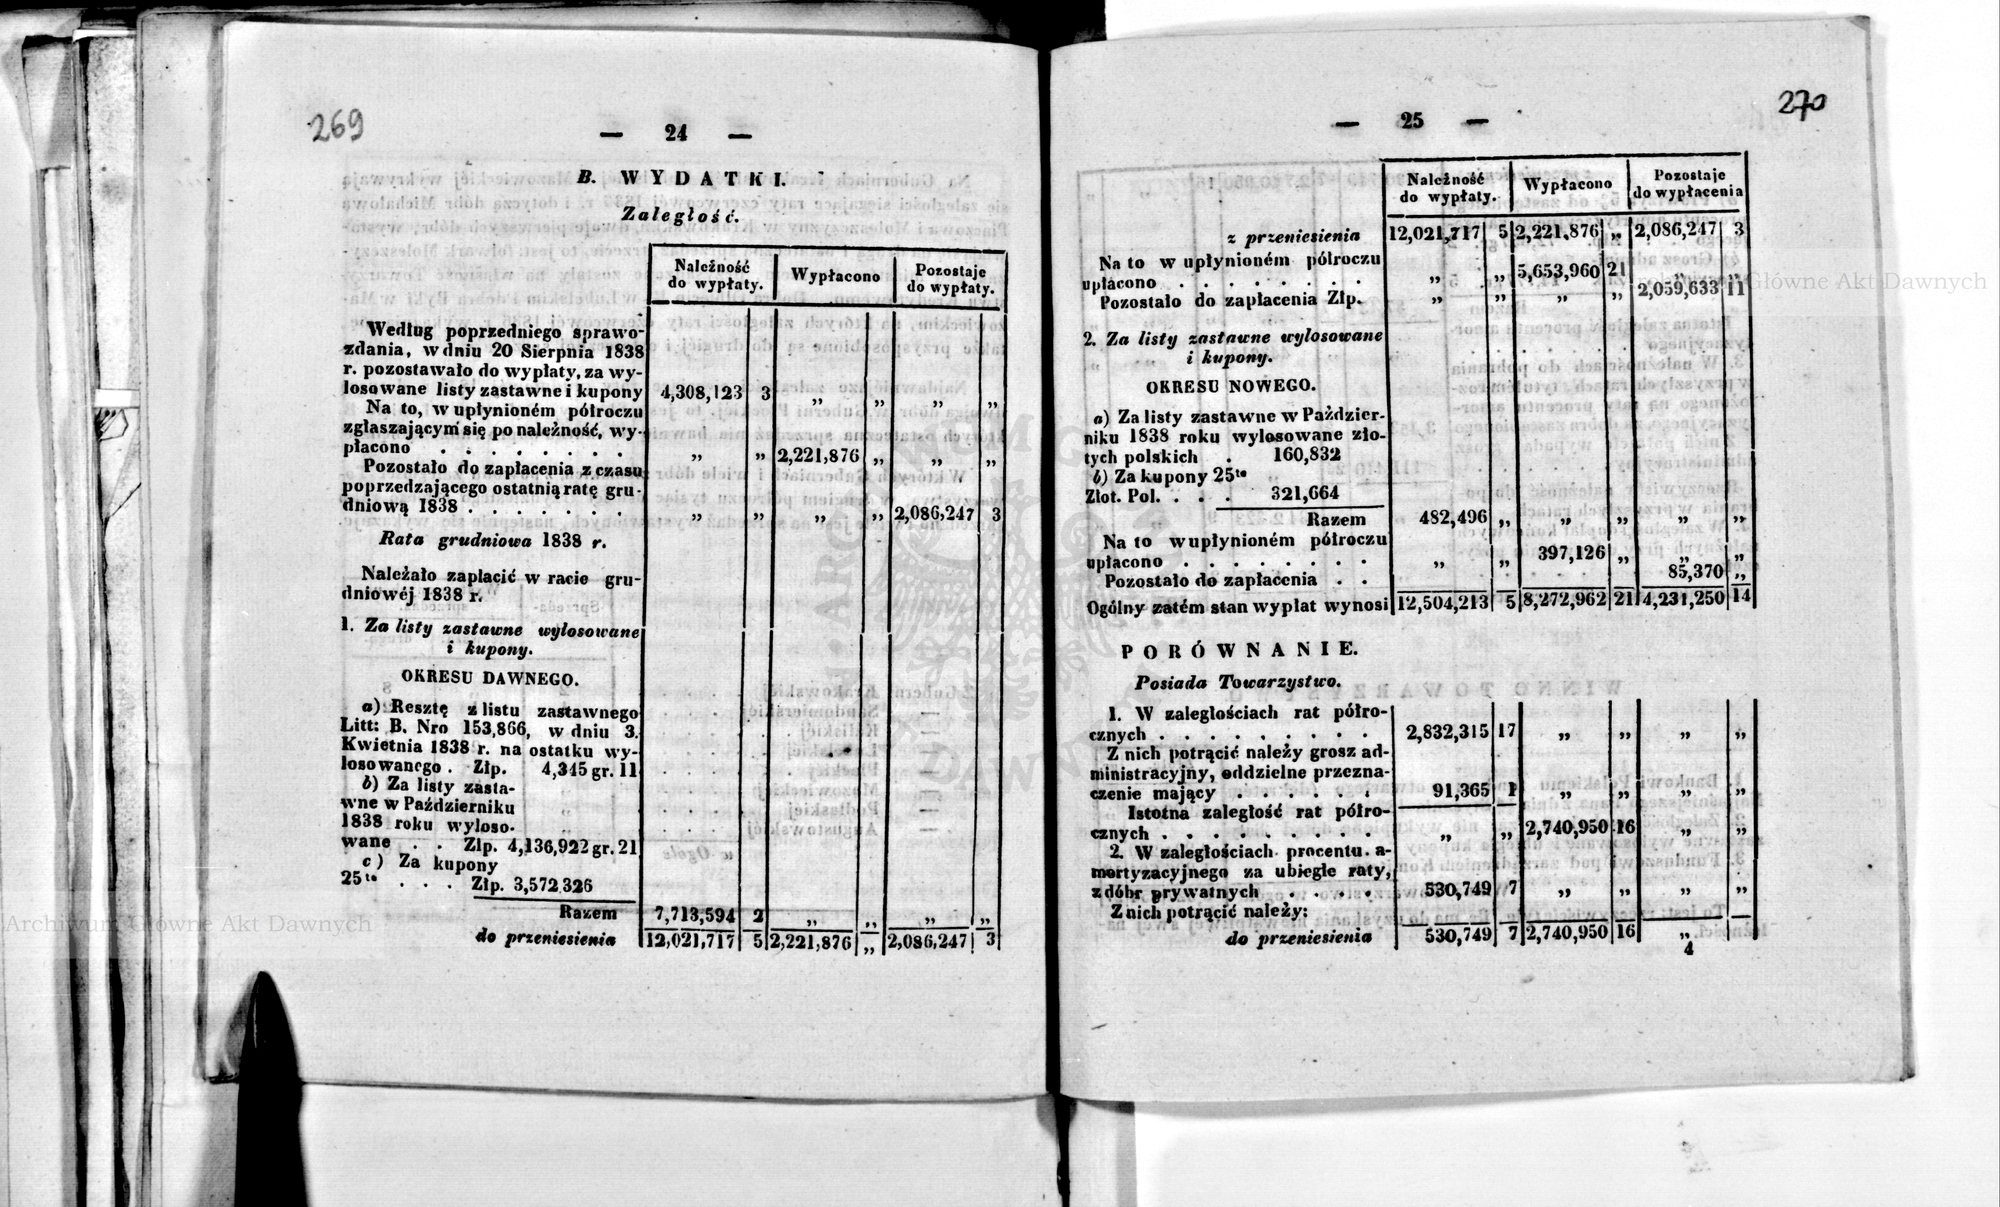 269
— 24 —
B. WYDATKI.
Zaległość.
Należność do wypłaty. Wypłacono Pozostaje do wypłaty.
Według poprzedniego sprawo-
zdania, w dniu 20 Sierpnia 1838
r. pozostawało do wypłaty, za wy-
losowane listy zastawne i kupony 4,308,123 3 „ „ „ „
Na to, w upłynioném półroczu
zgłaszającym się po należność, wy-
płacono . . . . . . . . „ „ 2,221,876 „ „ „
Pozostało do zapłacenia z czasu
poprzedzającego ostatnią ratę gru-
dniową 1838 . . . . . . . „ „ „ „ 2,086,247 3
Rata grudniowa 1838 r.
Należało zapłacić w racie gru-
dniowéj 1838 r.
1. Za listy zastawne wylosowane
i kupony.
OKRESU DAWNEGO.
a) Resztę z listu zastawnego
Litt: B. Nro 153,866, w dniu 3.
Kwietnia 1838 r. na ostatku wy-
losowanego . Złp. 4,345 gr. 11
b) Za listy zasta-
wne w Październiku
1838 roku wyloso-
wane . . Złp. 4,136,922 gr. 21
c) Za kupony
25te . . . Złp. 3,572,326
Razem 7,713,594 2 „ „ „ „
do przeniesienia 12,021,717 5 2,221,876 „ 2,086,247 3
270
— 25 —
Należność do wypłaty. Wypłacono Pozostaje do wypłacenia
z przeniesienia 12,021,717 5 2,221,876 „ 2,086,247 3
Na to w upłynioném półroczu
upłacono . . . . . . . . „ „ 5,653,960 21 „ „
Pozostało do zapłacenia Złp. „ „ „ „ 2,059,633 11
2. Za listy zastawne wylosowane
i kupony.
OKRESU NOWEGO.
a) Za listy zastawne w Paździer-
niku 1838 roku wylosowane zło-
tych polskich . 160,832
b) Za kupony 25te
Złot. Pol. . . . 321,664
Razem 482,496 „ „ „ „ „
Na to w upłynioném półroczu
upłacono . . . . . . . . „ „ 397,126 „ „ „
Pozostało do zapłacenia . . 85,370 „
Ogólny zatém stan wypłat wynosi 12,504,213 5 8,272,962 21 4,231,250 14
PORÓWNANIE.
Posiada Towarzystwo.
1. W zaległościach rat półro-
cznych . . . . . . . . . 2,832,315 17 „ „ „ „
Z nich potrącić należy grosz ad-
ministracyjny, oddzielne przezna-
czenie mający . . . . . . 91,365 1 „ „ „ „
Istotna zaległość rat półro-
cznych . . . . . . . . . „ „ 2,740,950 16 „ „
2. W zaległościach procentu a-
mortyzacyjnego za ubiegłe raty,
z dóbr prywatnych . . . . 530,749 7 „ „ „ „
Z nich potrącić należy:
do przeniesienia 530,749 7 2,740,950 16 „
4
Archiwum Główne Akt Dawnych
Główne Akt Dawnych